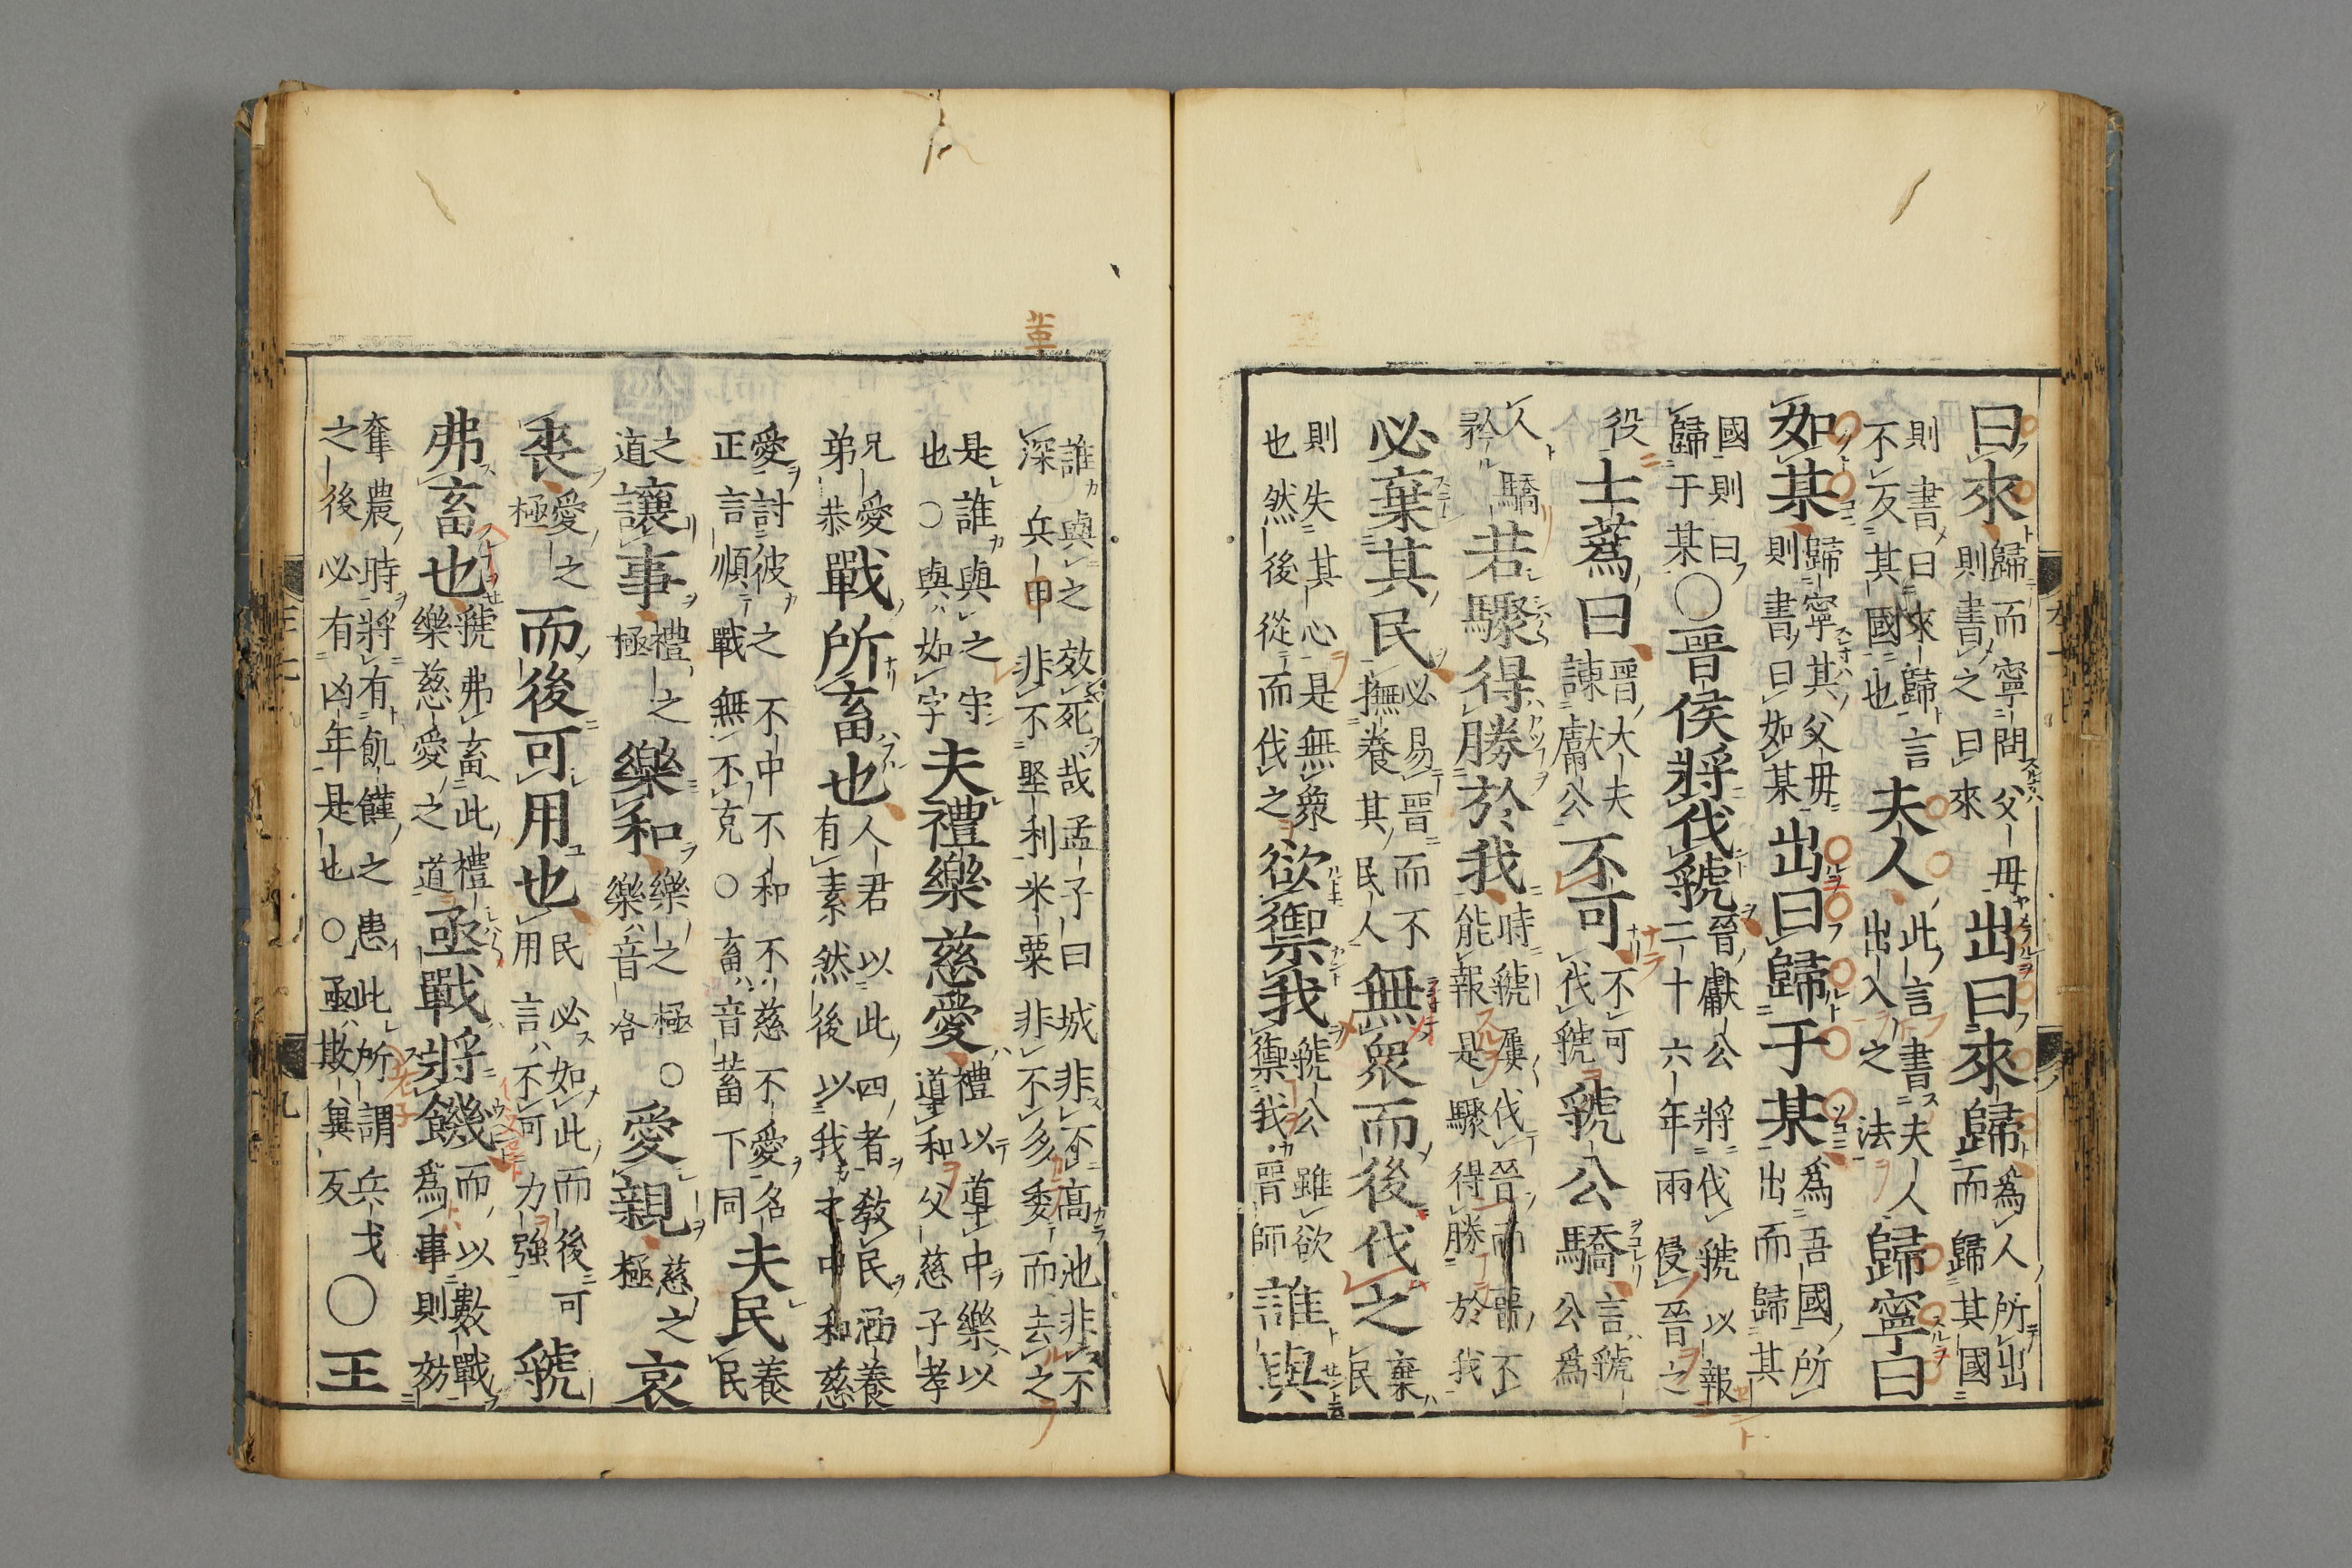 曰來歸而寧問父母則書之曰來出曰來歸爲人所出而歸其國
則書曰來歸言不反其國也夫人此言書夫人出入之法歸寧曰
如某歸寧其父母則書曰如某出曰歸于某爲吾國所出而歸其
國則曰歸于某○晉侯將伐虢晉獻公將伐虢以報二十六年兩侵晉之
役士蒍曰晉大夫諫獻公不可不可伐虢虢公驕言虢公爲
人驕矜若驟得勝於我時虢屢伐晉而晉不能報是驟得勝於我
必棄其民必易晉而不撫養其民人無衆而後伐之棄民
則失其心是無衆也然後從而伐之欲禦我虢公雖欲禦我晉師誰與
誰與之效死哉孟子曰城非不高池非不深兵甲非不堅利米粟非不多委而去之
是誰與之守也○與如字夫禮樂慈愛禮以道中樂以道和父慈子孝
兄愛弟恭戰所畜也人君以此四者教民涵養有素然後以我才中和慈
愛討彼之不中不和不慈不愛名正言順戰無不克○畜音蓄下同夫民養民
之道讓事禮之極樂和樂之極○樂音各愛親慈之極哀
喪愛之極而後可用也民必如此而後可用言不可力強虢
弗畜也虢弗畜此禮樂慈愛之道亟戰將饑而以數戰爲事則妨
奪農時將有飢饉之患此所謂兵戈之後必有凶年是也○亟欺冀反○王